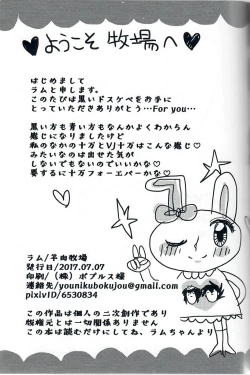 ようこそ 牧場へ
はじめまして
ラムと申します。
このたびは黒いドスケベをお手に
とっていただきありがとう …For you…
黒い方も青い方もなんかよくわからん
感じになりましたけど
私のなかの十万とVJ十万はこんな感じ♡
みたいなのは出せた気が
しないでもないのでいいかな♡
要するに十万フォーエバーかな♡
ラム/羊肉牧場
発行日/2017.07.07
印刷/(株) ポプルス様
連絡先/younikubokujou@gmail.com
pixivID/6530834
この作品は個人の二次創作であり
版権元とは一切関係ありません
この本は読むだけにしてね、ラムちゃんより